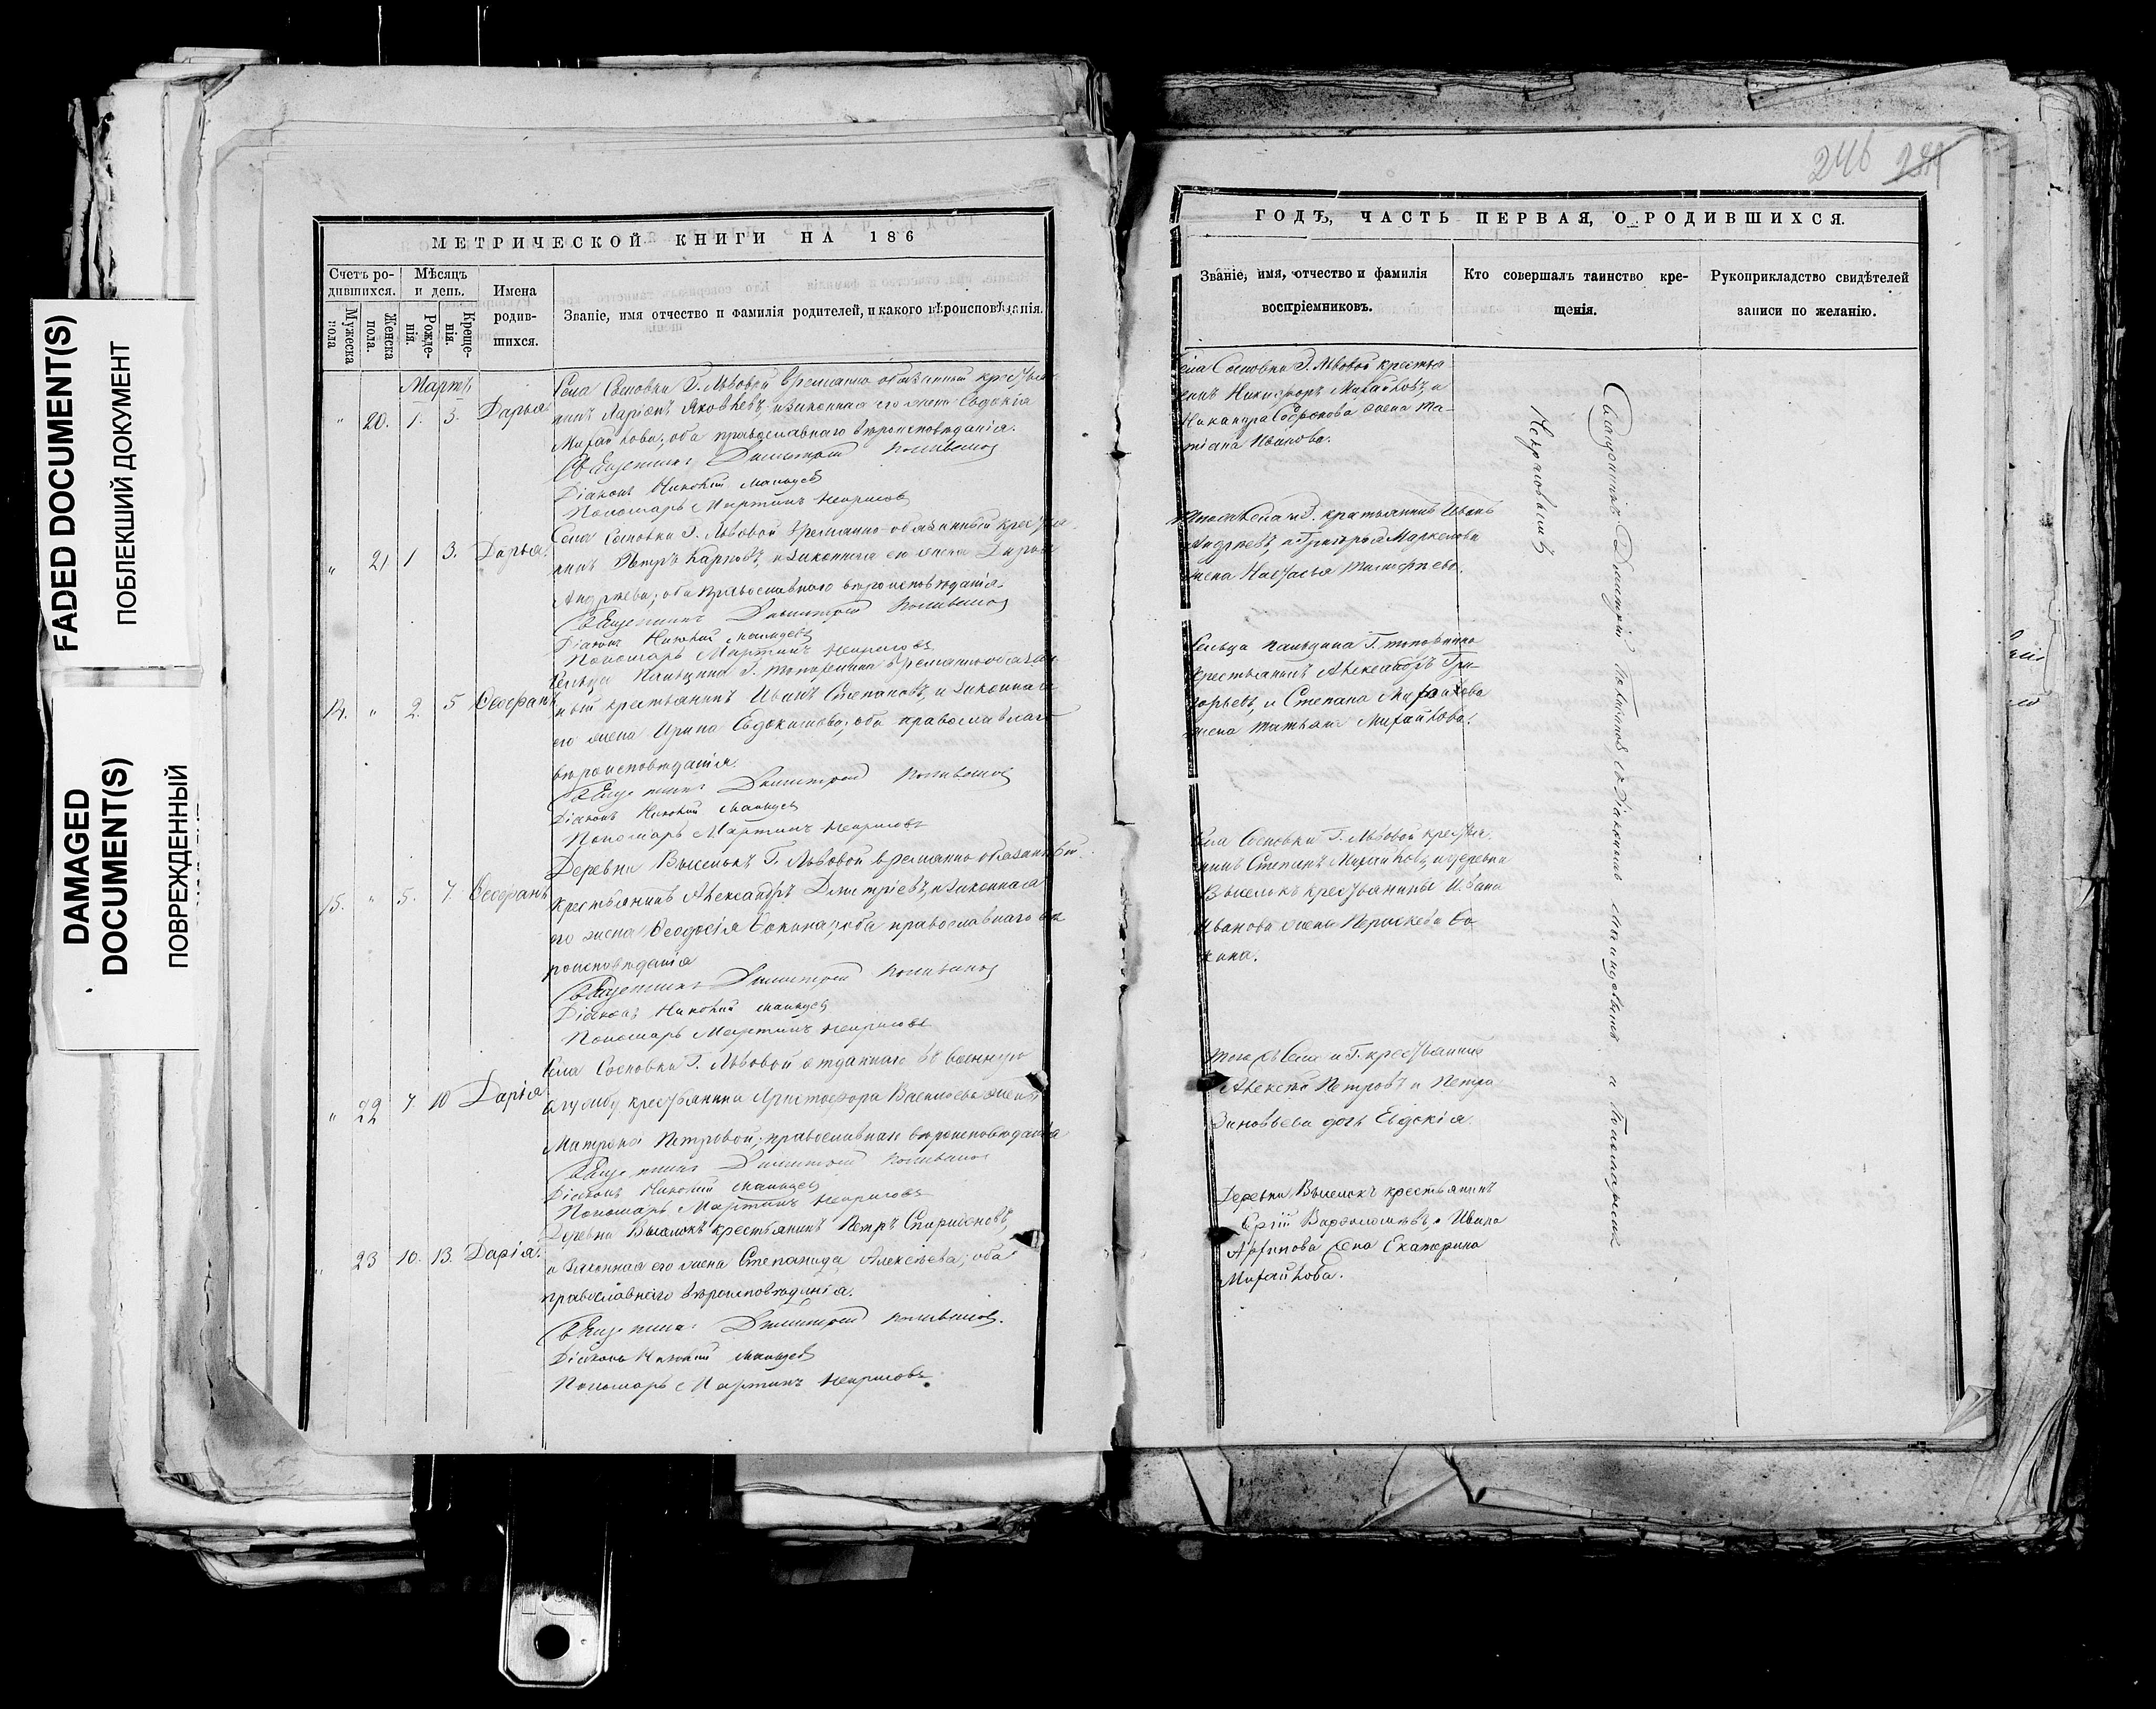 FADED DOCUMENT(S)
ПОБЛЕКШИЙ ДОКУМЕНТ
DAMAGED
DOCUMENT(S)
ПОВРЕЖДЕННЫЙ
МЕТРИЧЕСКОЙ КНИГИ НА 186
Счетъ ро-
дившихся.
Мѣсяцъ
и день.
Мужеска
пола
Женска
пола.
Рожде-
нія.
Креще-
нія.
Имена
родив-
шихся.
Званіе, имя отчество и фамилія родителей, и какого вѣроисповѣданія.
Мартъ
" 20. 1. 3. Дарья
Села Сосновки Г. Львовой временно обязанный кресть
нинъ Ларіонъ Яковлевъ, и законная его жена Евдокія
Михайлова; оба православнаго вѣроисповѣданія.
Священникъ Димитрій
Діаконъ Николай
Пономарь Мартинъ Некрасовъ
" 21 1 3. Дарья.
Села Сосновки Г. Львовой временно-обязанный
нинъ Петръ Карповъ, и законная его жена
Андреева; оба православнаго вѣроисповѣданія.
Священникъ Димитрій
Діаконъ Николай
Пономарь Мартинъ Некрасовъ
14. " 2. 5 Ѳеофанъ
Сельца Г. временнообязан
ный крестьянинъ Иванъ Степановъ, и законная
его жена Ирина Евдокимова; оба православнаго
вѣроисповѣданія.
Священникъ Димитрій
Діаконъ Николай
Пономарь Мартинъ Некрасовъ
15. " 5. 7. Ѳеофанъ
Деревни Выселокъ Г. Львовой временно обязанный
крестьянинъ Александръ Дмитріевъ, и законная
его жена Ѳеодосія Фокина; оба православнаго вѣ
роисповѣданія
Священникъ Димитрій
Діаконъ Николай
Пономарь Мартинъ Некрасовъ
" 22 7. 10 Дарія
Села Сосновки Г. Львовой отданнаго въ военную
службу крестьянина Христофора Васильева жены
Матроны Петровой; православнаго вѣроисповѣданія
Священникъ Димитрій
Діаконъ Николай
Пономарь Мартинъ Некрасовъ
" 23 10. 13. Дарія.
Деревни Выселокъ крестьянинъ Петръ Спиридоновъ,
и законная его жена Степанида Алексѣева; оба
православнаго вѣроисповѣданія.
Священникъ Димитрій
Діаконъ Николай
Пономарь Мартинъ Некрасовъ
246 241
ГОДЪ, ЧАСТЬ ПЕРВАЯ, О РОДИВШИХСЯ.
Званіе, имя, отчество и фамилія
воспріемниковъ.
Кто совершалъ таинство кре-
щенія.
Рукоприкладство свидѣтелей
записи по желанію.
Села Сосновки Г. Львовой крестья
нинъ Никифоръ Михайловъ, и
Никанора Софронова жена Та-
тіана Иванова.
Тогоже села и Г. крестьянинъ Иванъ
Андреевъ, и Григорья Маркелова
жена Настасья
Сельца Г.
крестьянинъ Александръ Гри-
горьевъ, и Степана Михайлова
жена Татьяна Михайлова.
Села Сосновки Г. Львовой крестья
нинъ Степанъ Михайловъ, и деревни
Выселокъ крестьянина Ивана
Иванова жена Параскева Фо
кина.
Тогоже села и Г. крестьянинъ
Алексѣй Петровъ и Петра
Зиновьева дочь Евдокія.
Деревни Выселокъ крестьянинъ
Сергій Варѳоломѣевъ, и Ивана
жена Екатерина
Михайлова.
Священникъ Димитрій съ Діакономъ и Пономаремъ
Некрасовымъ